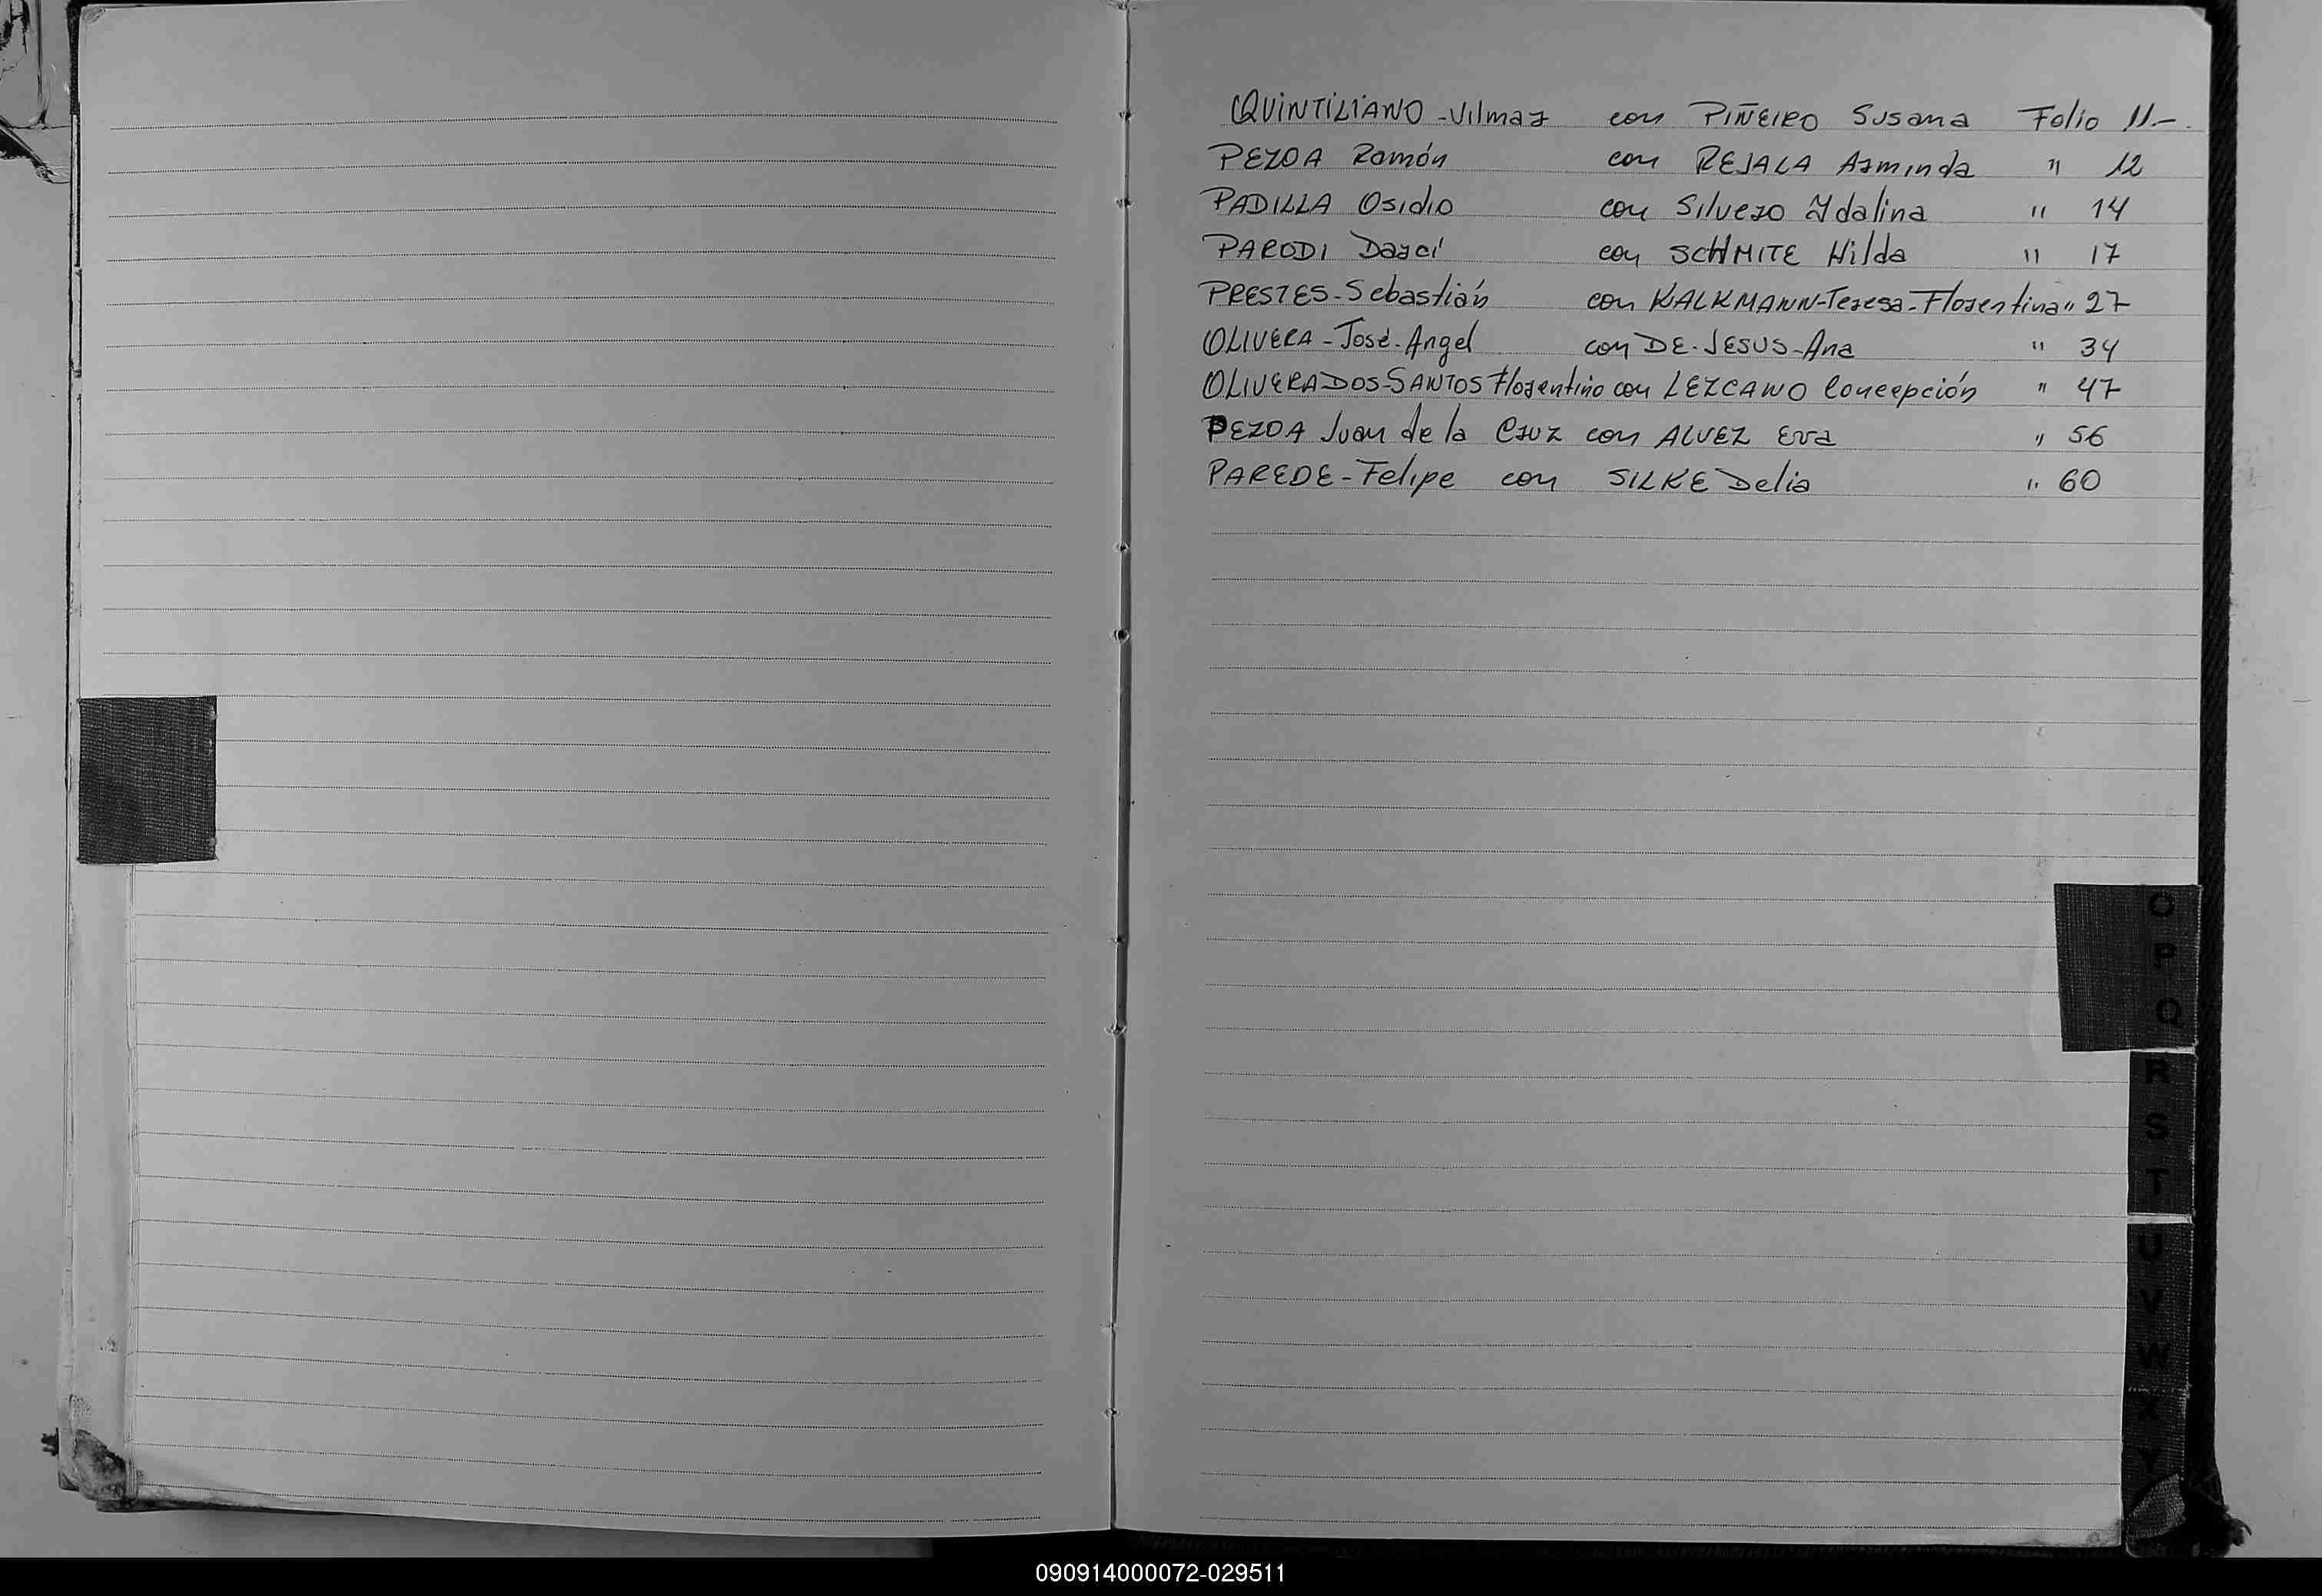 QUINTILIANO - Vilmar con PIÑEIRO Susana Folio 11.-
PEZOA Ramón con REJALA Arminda " 12
PADILLA Osidio con Silvero Ydalina " 14
PARODI Darci con SCHMITE Hilda " 17
PRESTES - Sebastián con KALKMANN - Teresa - Florentina " 27
OLIVERA - José - Angel con DE - JESUS - Ana " 34
OLIVERA DOS - SANTOS Florentino con LEZCANO Concepción " 47
PEZOA Juan de la Cruz con ALVEZ Eva " 56
PAREDE - Felipe con SILKE Delia " 60
O
P
Q
R
S
T
U
V
W
X
Y
090914000072-029511